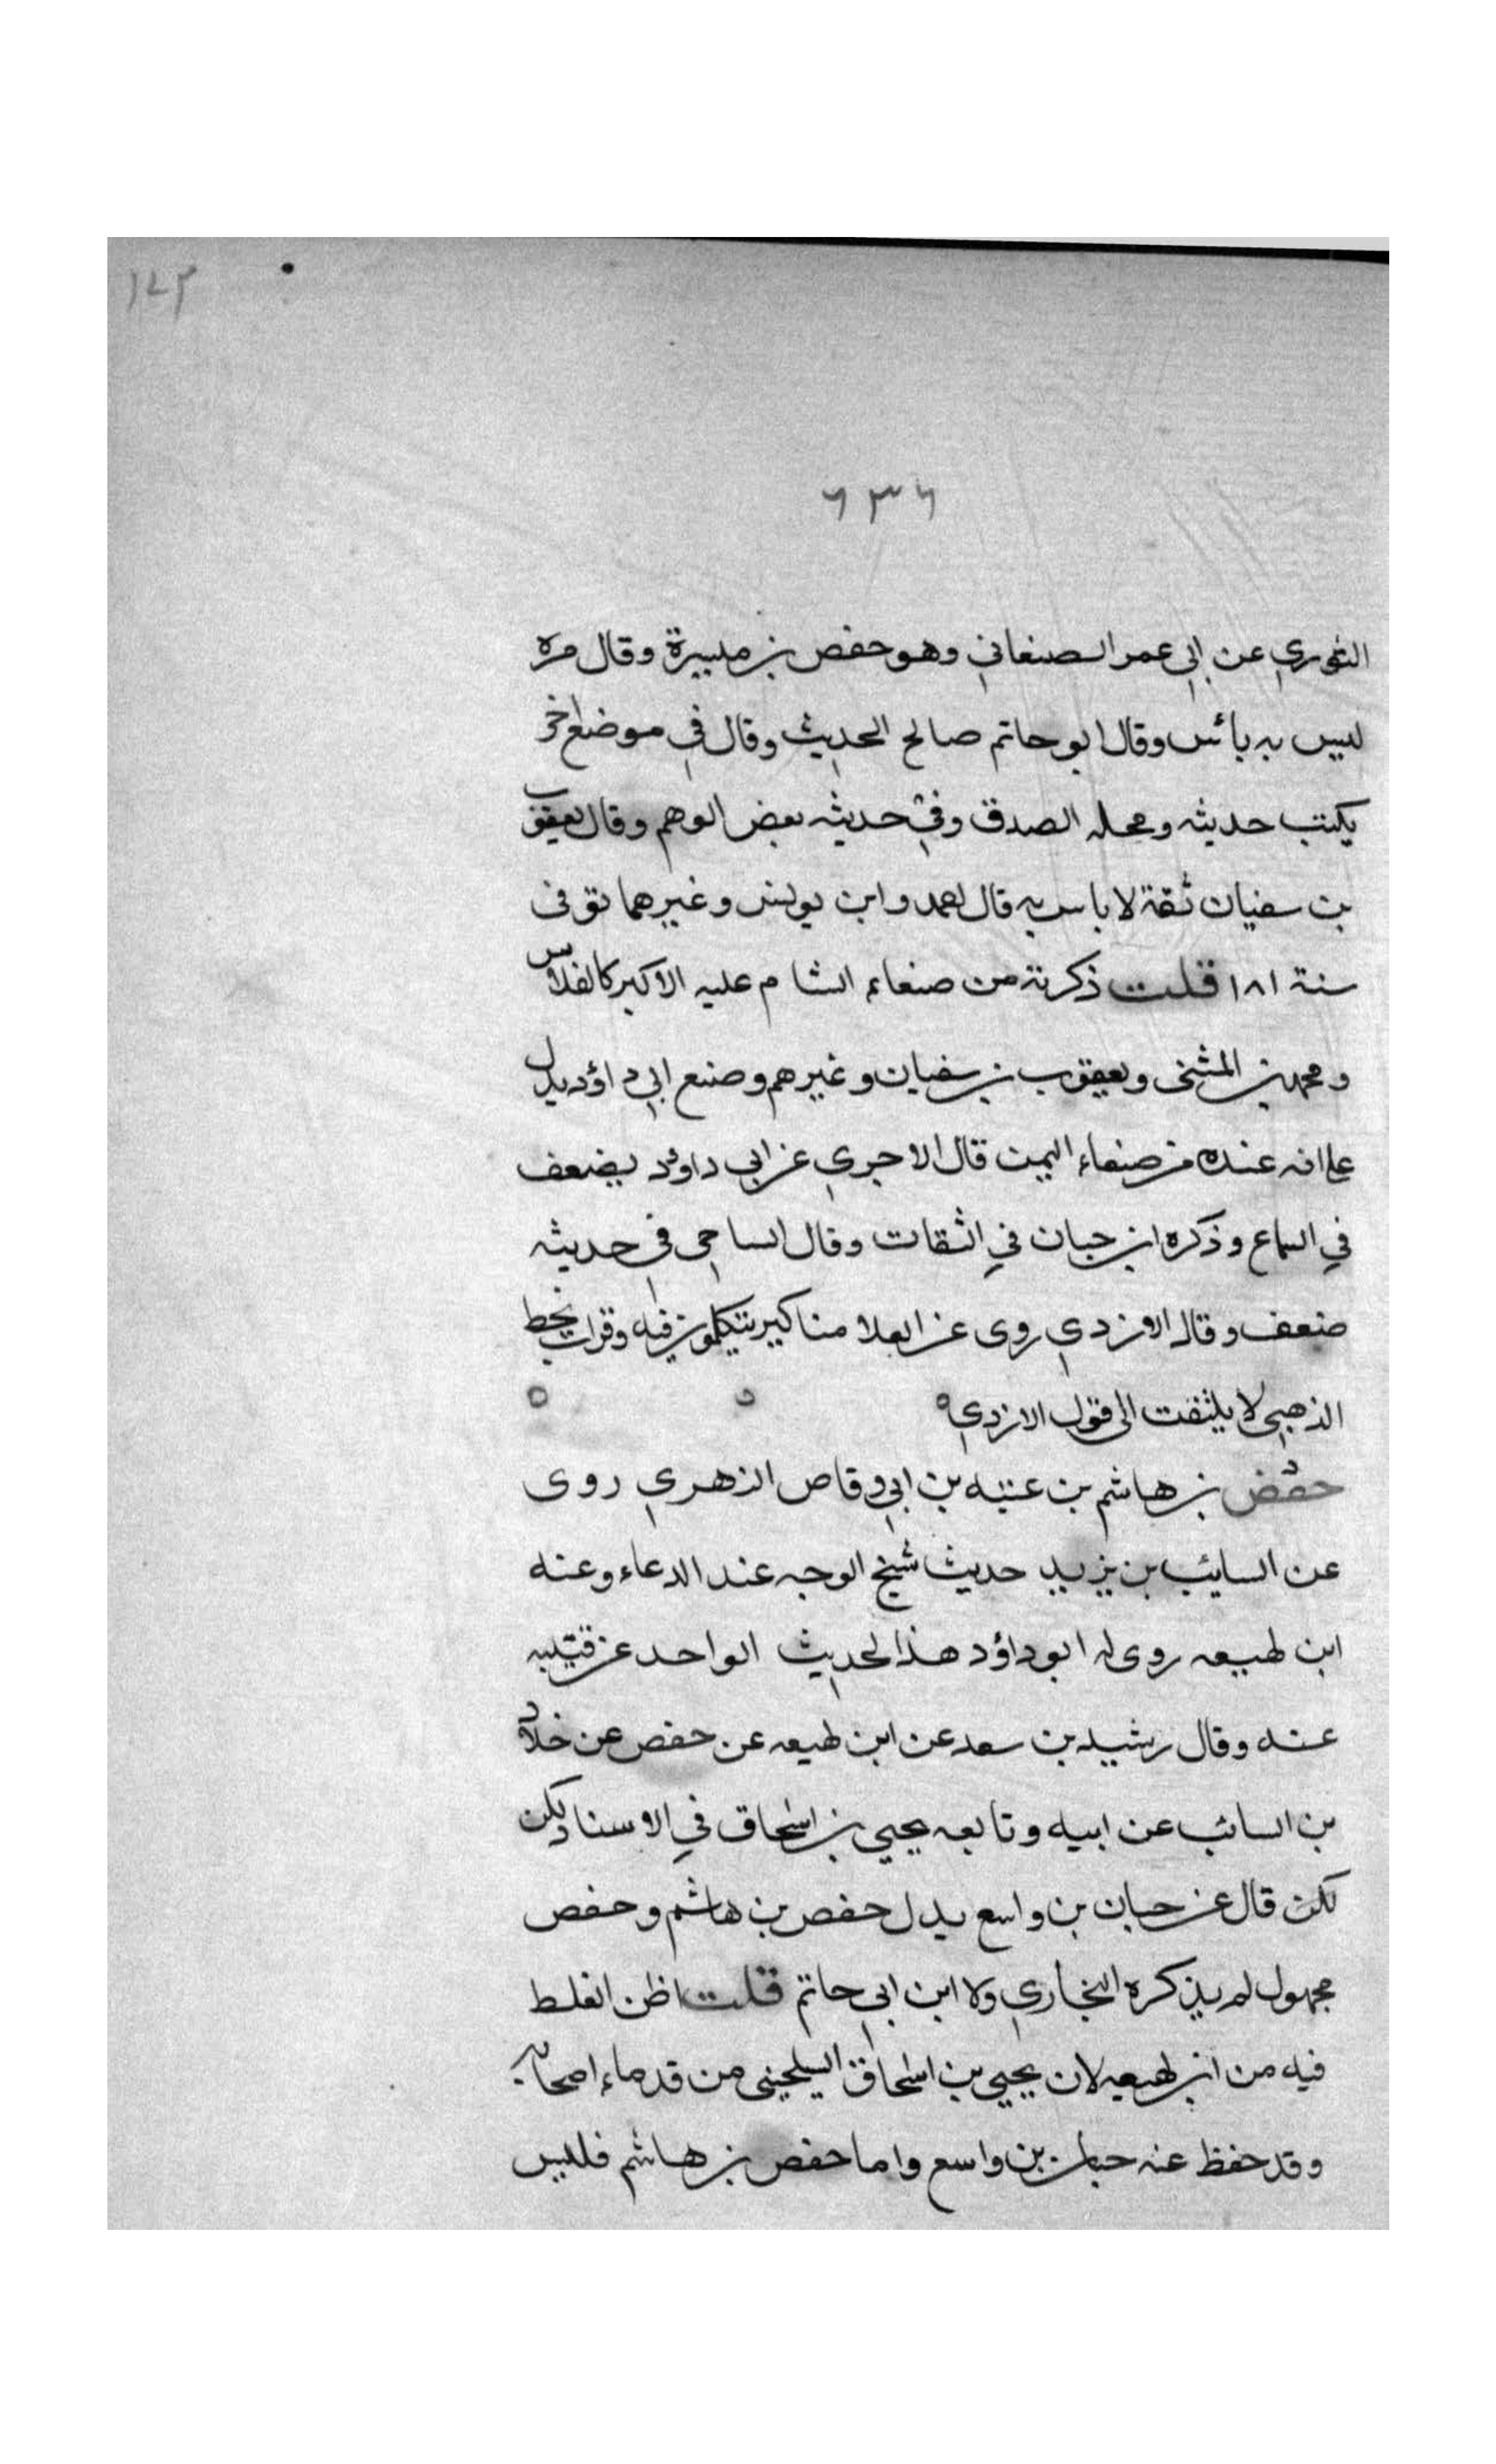 ١٤٣
٦٣٦
الثوري عن ابي عمر الصنعاني وهو حفص بن ميسرة وقال مره
ليس به بائس وقال ابو حاتم صالح الحديث وقال في موضع اخر
يكتب حديثه ومحله الصدق وفي حديثه بعض الوهم وقال يعقوب
بن سفيان ثقة لا باس به قال احمد وابن يونس وغيرهما توفى
سنة ١٨١ قلت ذكرته من صنعاء الشام عليه الاكبر كالفلاس
ومحمد بن المثنى ويعقوب بن سفيان وغيرهم وصنع ابي داؤد يدل
على انه عنده من صنعاء اليمن قال الاجري عن ابي داؤد يضعف
في السماع وذكره ابن حبان في الثقات وقال الساجى في حديثه
ضعف وقال الازدي روى عن العلا مناكير يتكلمون فيه وقرات بخط
الذهبى لا يلتفت الى قول الازدي ٥ ٥ ٥
حفص بن هاشم بن عتبه بن ابي وقاص الزهري روى
عن السايب بن يزيد حديث شيخ الوجه عند الدعاء وعنه
ابن لهيعه روى له ابو داؤد هذا الحديث الواحد عن قتيبه
عنه وقال رشيد بن سعد عن ابن لهيعه عن حفص عن خلاد
بن السائب عن ابيه وتابعه يحيي بن اسحاق في الاسناد لكن
لكن قال عن حبان بن واسع بدل حفص بن هاشم وحفص
مجهول لم يذكره البخاري ولا ابن ابي حاتم قلت اظن الغلط
فيه من ابن لهيعه لان يحيي بن اسحاق السيلحينى من قدماء اصحابه
وقد حفظ عنه حبان بن واسع واما حفص بن هاشم فليس